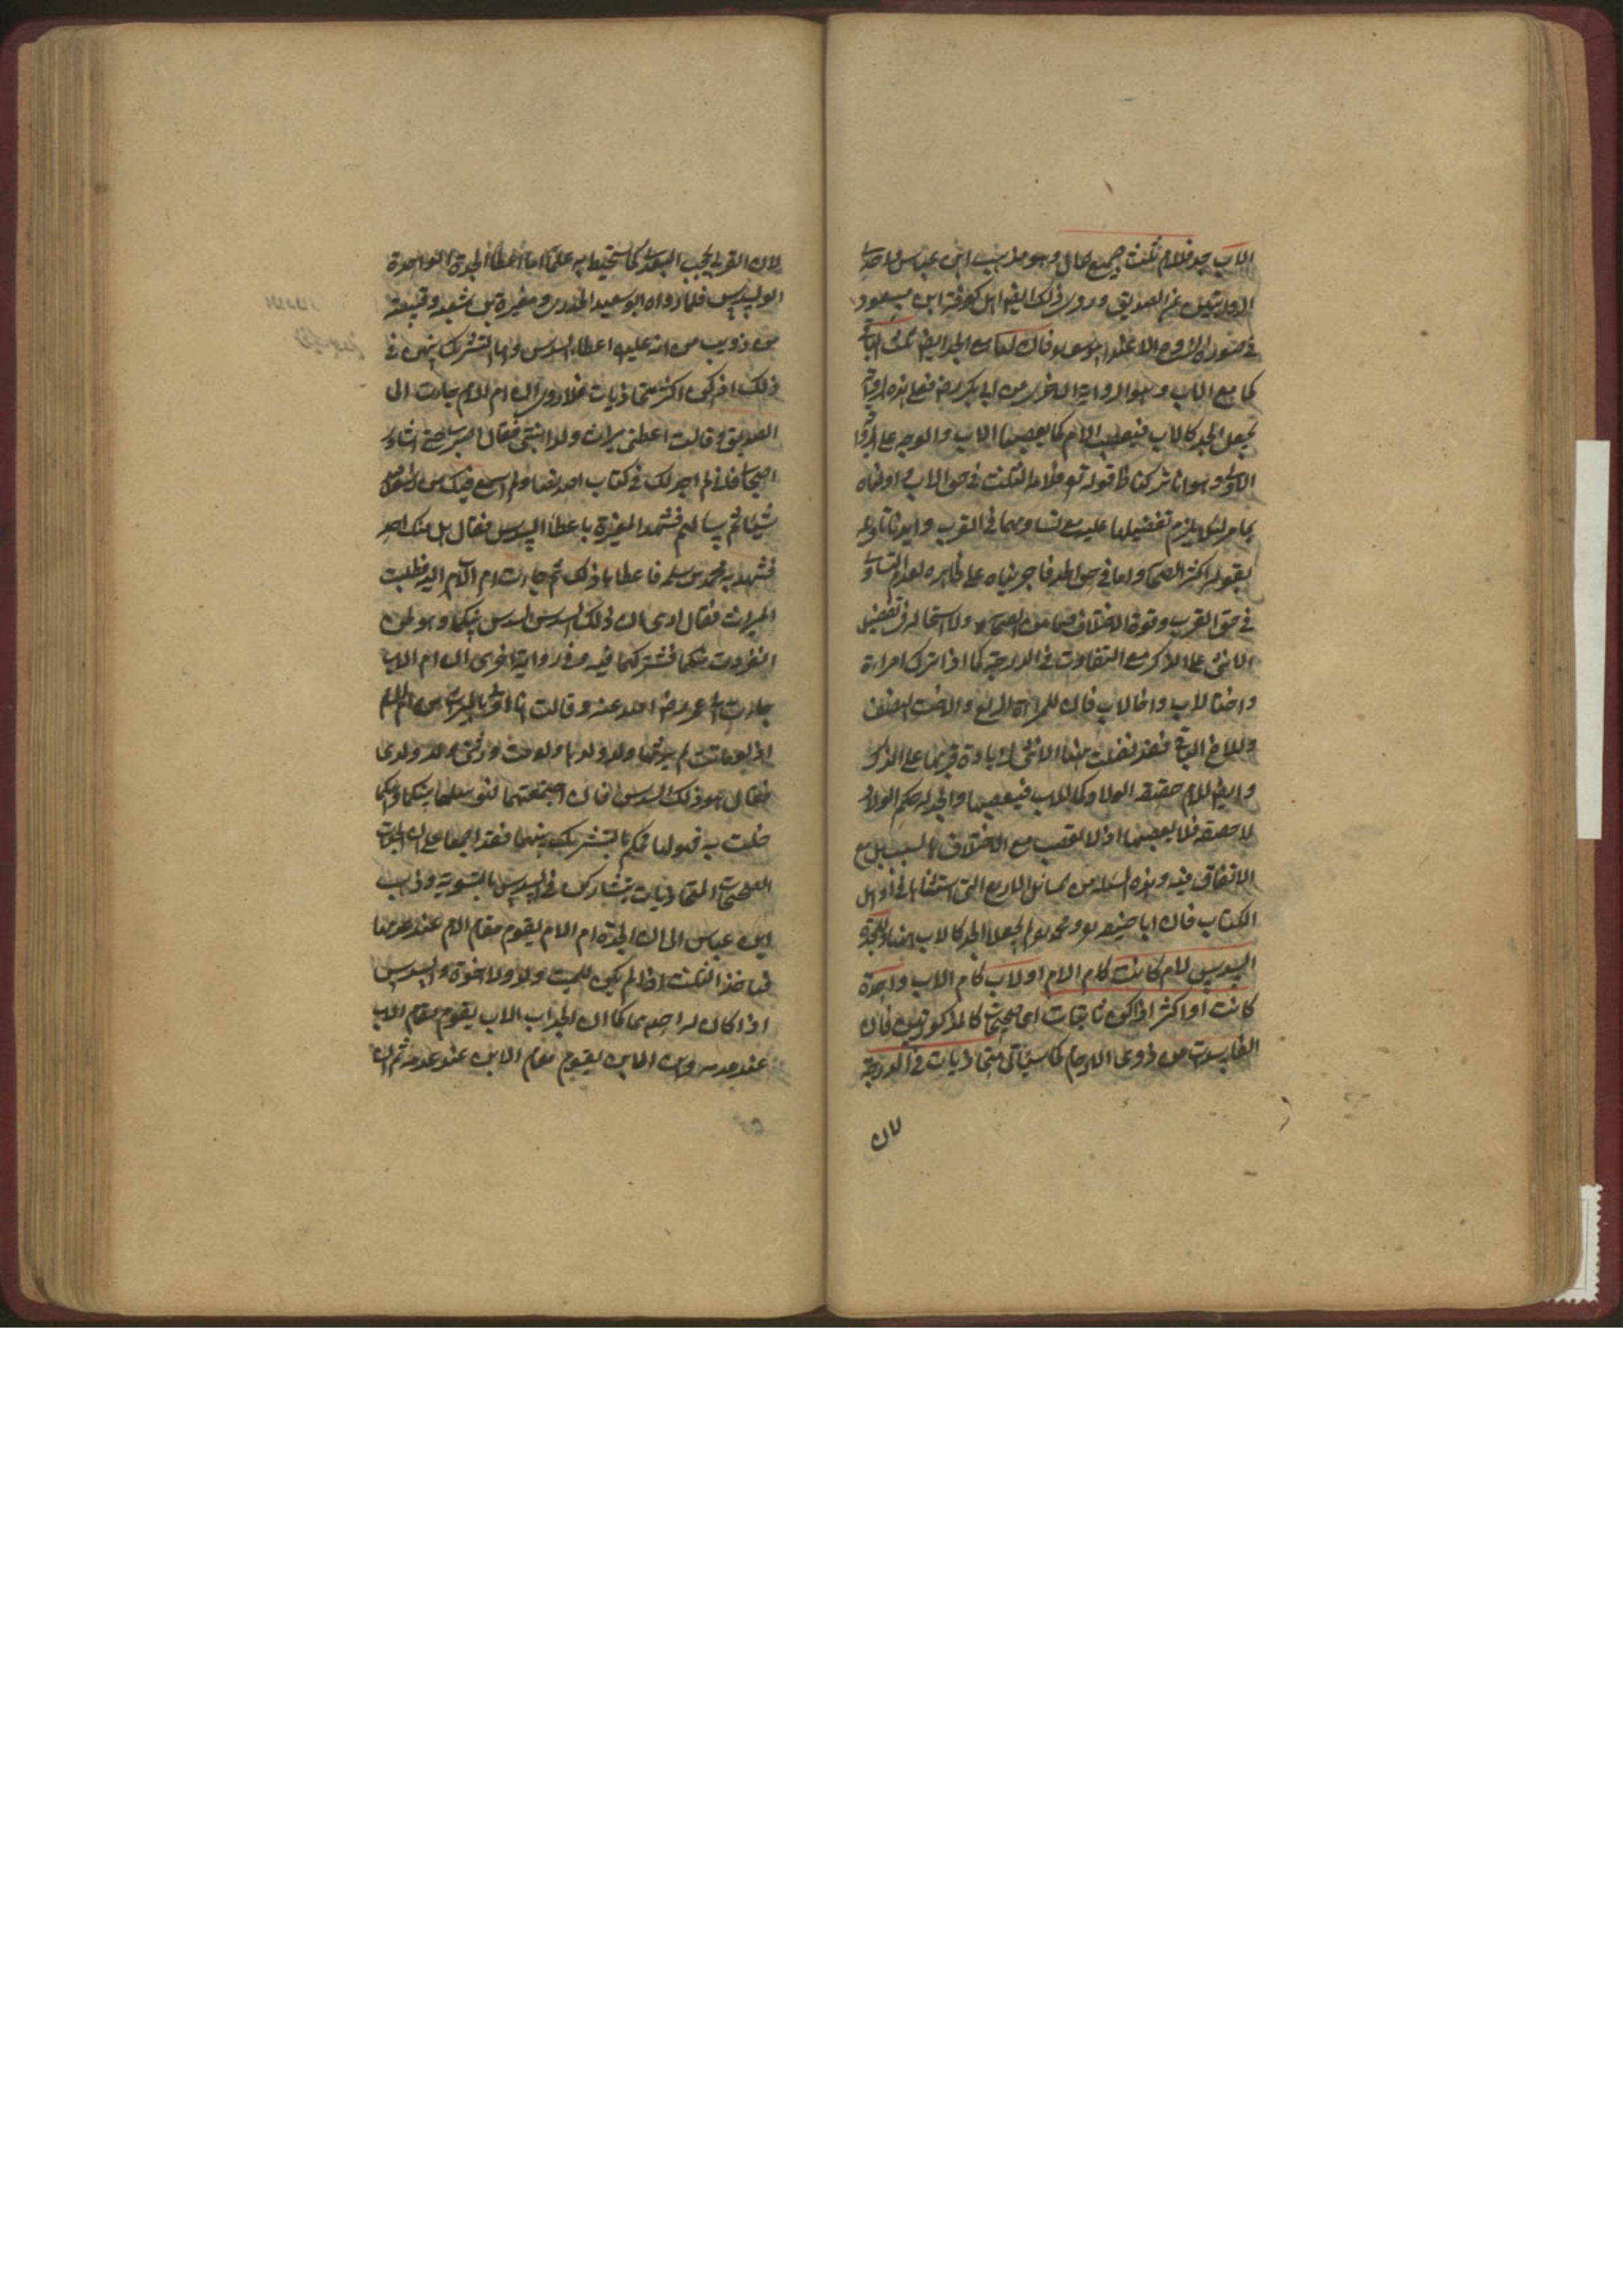 الاب جد فللام ثلث جميع المال وهو مذهب ابن عباس واحدى
الروايتين عن الصديق وروى ذلك ايضا اهل كوفة ابن مسعود
في صورة الزوج الا عند ابي يوسف فان لها مع الجد ايضا ثلث الباقي
كما مع الاب وهو الرواية الاخرى من ابي بكر رض فعلى هذه الرواية
يجعل الجد كالاب فيعصب الام كما يعصبها الاب والوجه على الرواية
الاولى وهو انا تركنا ظ قوله تع فلامه الثلث في حق الاب واولناه
بما مر لئلا يلزم تفضيلها عليه مع تساويهما في القرب وايدنا تاويله
بقول اكثر الصحابة واما في حق الجد فاجريناه على ظاهره لعدم التساوي
في حق القرب وقوة الاختلاف فيما بين الصحابة ولا استحالة في تفضيل
الانثى على الذكر مع التفاوت في الدرجة كما اذا ترك امراءة
واختا لاب وام واخا لاب فان للمراءة الربع والاخت النصف
وللاخ الباقي فقد فضلت هنا الانثى لزيادة قربها على الذكر
وايضا للام حقيقة الولاد كما للاب فيعصبها والجد له حكم الولاد
لا حقيقة فلا يعصبها اذ لا تعصيب مع الاختلاف في السبب بل مع
الاتفاق فيه وهذه المسئلة من المسائل الاربع التي استثناها في اول
الكتاب فان ابا حنيفة ومحمد لم يجعلا الجد كالاب هنا وللجدة
السدس لام كانت كام الام او لاب كام الاب واحدة
كانت او اكثر اذا كن ثابتات اي صحيحات كالمذكورتين فان
الفاسدات من ذوي الارحام كما سيأتي متحاذيات في الدرجة
لان
لان القربى تحجب البعدى كما ستحيط به علما اما اعطاء الجدة الواحدة
السدس فلما رواه ابو سعيد الخدري ومغيرة بن شعبة وقبيصة
بن ذويب من انه عليه اعطاها السدس واما التشريك بينهن في
ذلك اذا كن اكثر متحاذيات فلما روى ان ام الام جاءت الى
الصديق وقالت اعطني ميراث ولد ابنتي فقال اصبري حتى اشاور
اصحابي فاني لم اجد لك في كتاب الله نصا ولم اسمع فيك من رسول الله
شيئا ثم سالهم فشهد المغيرة باعطاء السدس فقال هل معك احد
فشهد به محمد بن مسلمة فاعطاها ذلك ثم جاءت ام الاب اليه فطلبت
الميراث فقال ارى ان ذلك السدس بينكما وهو لمن
انفردت منكما فشركهما فيه وفي رواية اخرى ان ام الاب
جاءت الى عمر رضي الله عنه وقالت انا اولى بالميراث من ام الام
اذ لو ماتت لم يرثها ولد ولدها ولو مت ورثني ولد ولدي
فقال هو ذلك السدس فان اجتمعتما فهو بينكما وايتكما
خلت به فهو لها فحكم بالتشريك بينهما فقد اجمعا على ان الجدات
الصحيحات المتحاذيات يتشاركن في السدس بالتسوية وذهب
ابن عباس الى ان الجدة ام الام يقوم مقام الام عند عدمها
فياخذ الثلث اذا لم يكن للميت ولد ولا اخوة والسدس
اذا كان له احدهما كما ان الجد اب الاب يقوم مقام الاب
عند عدمه وابن الابن يقوم مقام الابن عند عدمه ثم ان